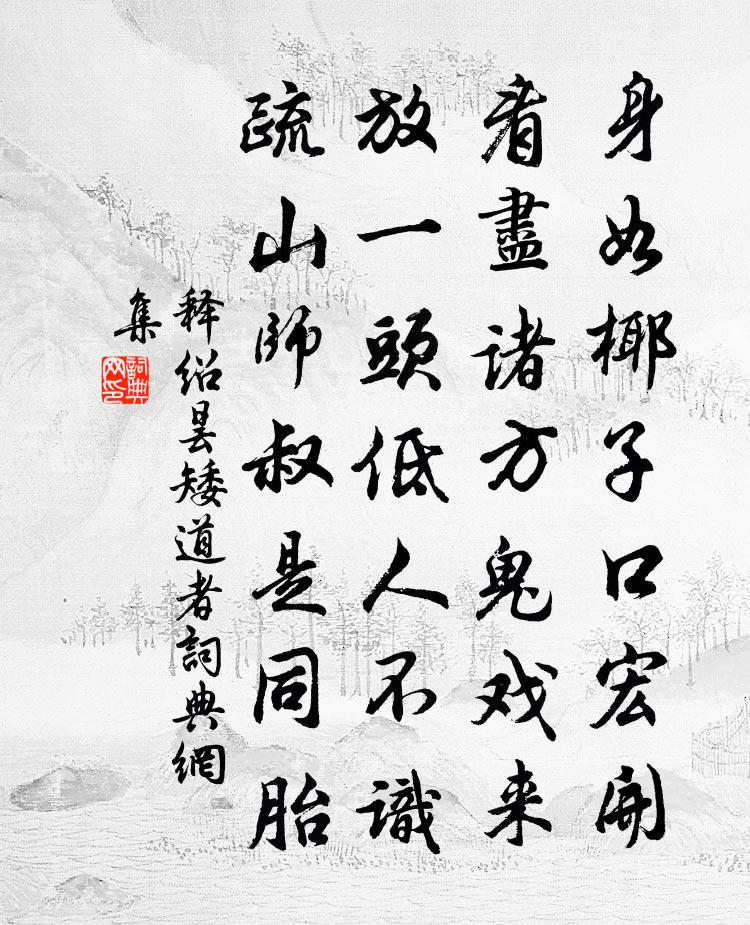 身如椰子口宏開
看盡諸方鬼戏来
放一頭低人不識
疏山師叔是同胎
释绍昙矮道者詞典網
集
詞典网印